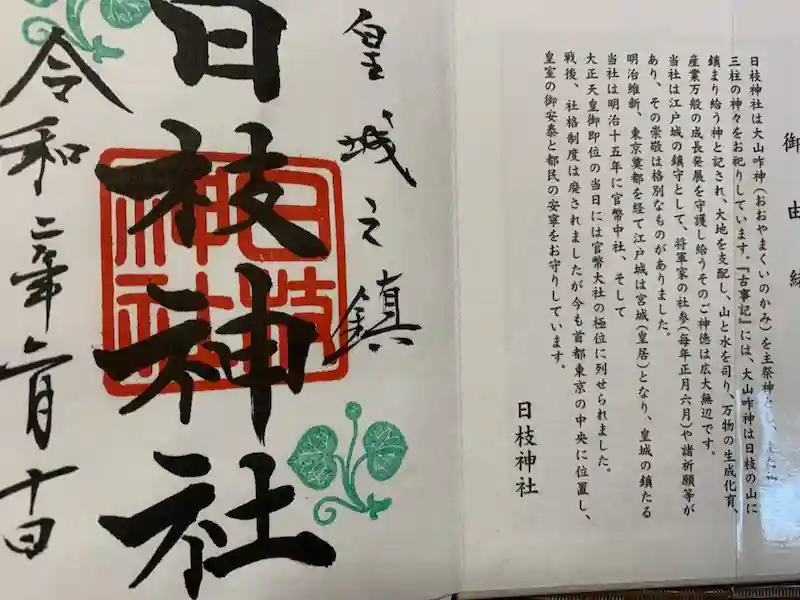 御由
日枝神社は大山咋神(おおやまくいのかみ)を主祭神とし、
三柱の神々をお祀りしています。『古事記』には、大山咋神は日枝の山に
鎮まり給う神と記され、大地を支配し、山と水を司り、万物の生成化育、
産業万般の成長発展を守護し給うそのご神徳は広大無辺です。
当社は江戸城の鎮守として、将軍家の社参(毎年正月六月)や諸祈願等が
あり、その崇敬は格別なものがありました。
明治維新、東京奠都を経て江戸城は宮城(皇居)となり、皇城の鎮たる
当社は明治十五年に官幣中社、そして
大正天皇御即位の当日には官幣大社の極位に列せられました。
戦後、社格制度は廃されましたが今も首都東京の中央に位置し、
皇室の御安泰と都民の安寧をお守りしています。
日枝神社
皇城之鎮
日枝神社
日枝
神社
令和二年